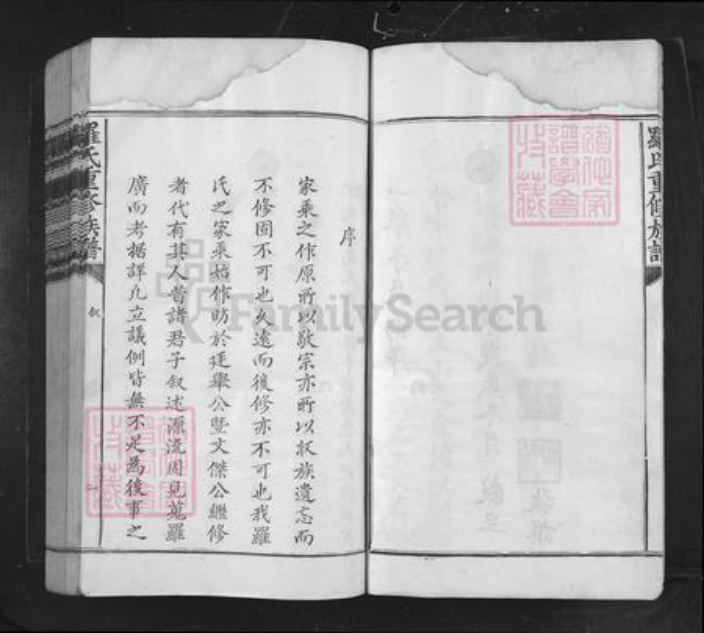 羅氏重修族譜
序
家乘之作原所以敬宗亦所以收族遺忘而
不修固不可也久遠而後修亦不可也我羅
氏之家乘始作昉於廷舉公暨文傑公繼修
者代有其人昔諸君子叙述源流固見蒐羅
廣而考據詳凡立議例皆無不足為後事之
羅氏重修族譜
叙
一
FamilySearch